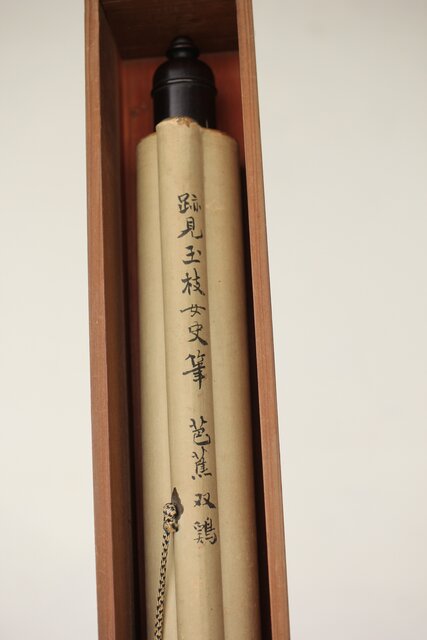 跡見玉枝女史筆 芭蕉双鶏